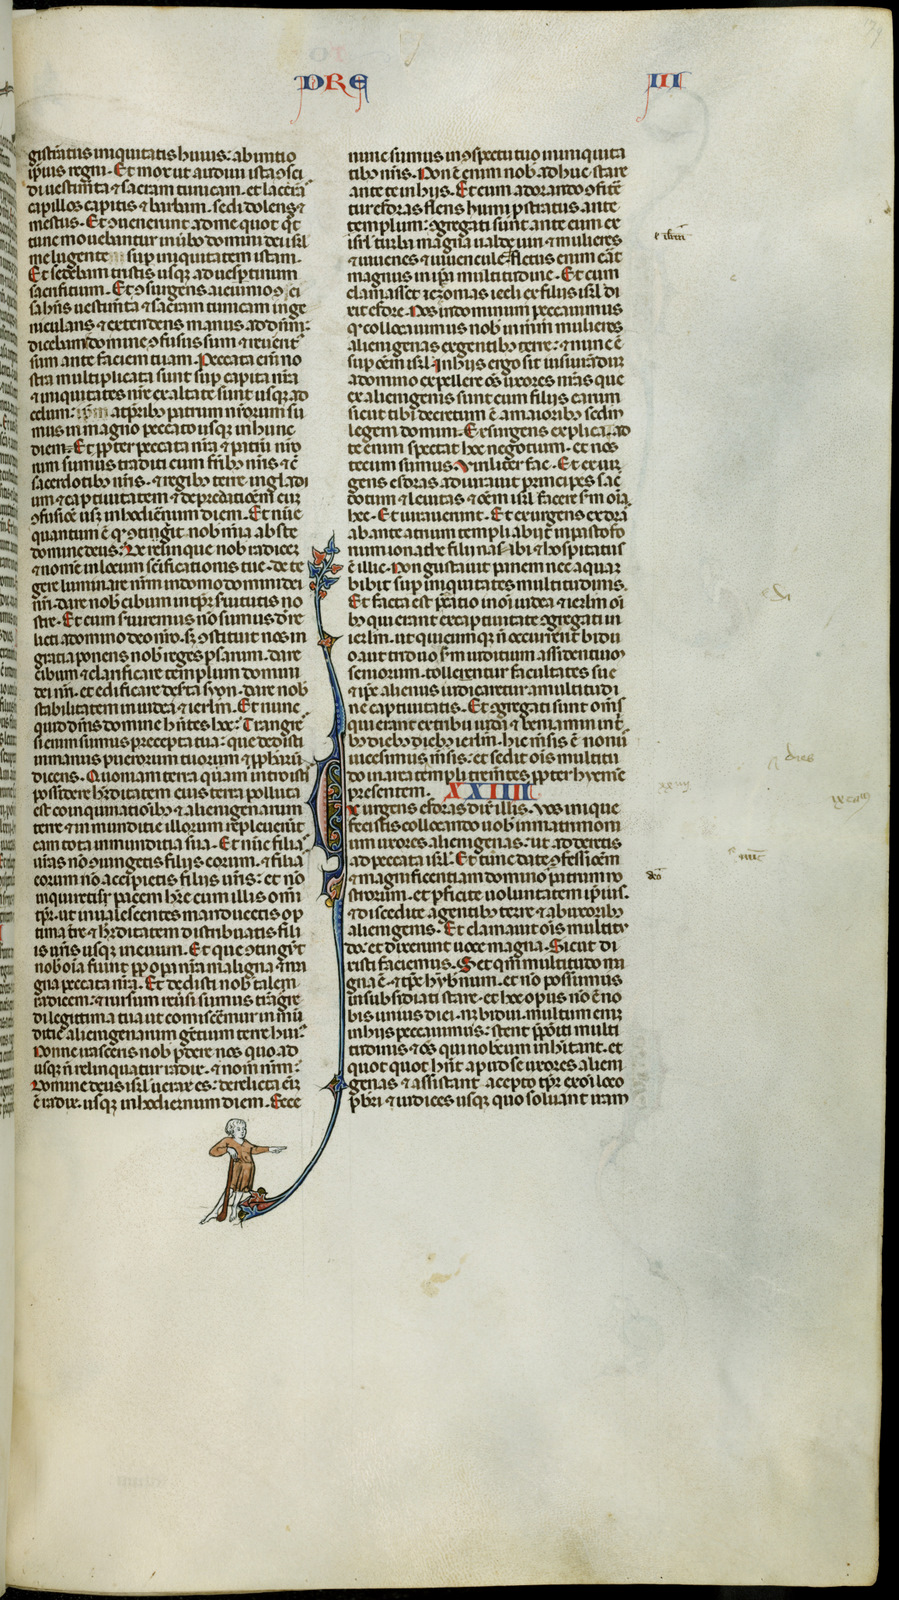 DRE
III
gistratus iniquitatis huius: ab initio
ipsius regni. Et mox ut audiui ista 9sci
di uestim̄ta & sacram tunicam. et lacera
capillos capitis & barbam. sedi dolens &
mestus. Et 9uenerunt ad me quot q̄t
tunc mouebantur in ūbo domini dei isrl
me lugente sup iniquitatem istam.
Et sedebam tristis usq; ad uesptinum
sacrificium. Et 9surgens a ieiunio
sacram tunicam inge
niculans & extendens manus ad dnm:
dicebam domine 9fusus sum & reuerit
sum ante faciem tuam. Peccata eni no
stra multiplicata sunt sup capita nra
& iniquitates nre exaltate sunt usq; ad
celum: a tpribo patrum nrorum su
mus in magno peccato usq; in hunc
diem. Et ppter peccata nra & patrū nro
rum sumus traditi cum frībo nris & c̄
sacerdotibo nris. & regibo terre in gladi
um & captiuitatem & depredatioem cū
9fusioē usq; in hodiernum diem. Et nūc
quantum ē q 9tingit nob mia abs te
domine deus: Et relinque nob radicez
& nomē in locum scificationis tue. de te
gere luminare nrm in domo domini dei
nri. dare nob cibum in tpr suitutis no
stre. Et cum suiremus no sumus dre
licti a domino deo nro. S; 9stituit nos in
gratia ponens nob reges psarum. dare
cibum & clarificare templum domini
dei nri. et edificare deserta syon. dare nob
stabilitatem in iudea & ierlm. Et nunc
quid dīms domine hn̄tes hec: Trangre
si enim sumus precepta tua: que dedisti
in manus puerorum tuorum & pphārū
dicens. Quoniam terra quam introisti
possidere hrditatem eius terra polluta
est coinquinationibo & alienigenarum
terre & immunditie illorum repleuerūt
eam tota immunditia sua. Et nūc filia
uras no 9iungetis filiis eorum. & filia
eorum no accipietis filiis uris: et no
inquiretis pacem hre cum illis omī
tpr. ut inualescentes manducetis op
tima tre & hrditatem distribuatis fili
is uris usq; in euum. Et que 9tingūt
nob oīa fiunt pp opa nra maligna & ma
gna peccata nra. Et dedisti nob talem
radicem: & rursum reūsi sumus trāgre
di legitima tua ut comiscemur immū
ditie alienigenarum gētium terre hui
Nonne irasceris nob pdere nos quo ad
usq; n̄ relinquatur radix. & nom̄ nrm:
Domine deus isrl uerax es: derelicta ē ei
ē radix. usq; in hodiernum diem. Ecce
nunc sumus in 9spectu tuo in iniquita
tibo nris. Non ē enim nob adhuc stare
ante te in hiis. Et cum adorando 9fitē
tur esdras flens humi pstratus ante
templum: 9gregati sunt ante eum ex
isrl turba magna ualde uiri & mulieres
& iuuenes & iuuencule fletus enim erāt
magnus in ipa multitudine. Et cum
clamasset iezomas iecli ex filiis isrl di
xit esdre. Nos in dominum peccauimus
q collocauimus nob in mrm mulieres
alienigenas ex gentibo terre: & nunc ē
sup oēm isrl. In hiis ergo sit iusiurādū
a domino expellere oēs uxores nras que
ex alienigenis sunt cum filiis earum
sicut tibi decretum ē a maioribo scdm
legem domini. Exsurgens explica. ad
te enim spectat hec negotium. et nos
tecum sumus. Viriliter fac. Et exur
gens esdras adiurauit principes sac̄
dotum & leuitas & oēm isrl. facere sm oīa
hec. Et iurauerunt. Et exurgens exdra
ab ante atrium templi abiit in pastofo
rium ionathe filii nasabi & hospitatus
ē illic. Non gustauit panem nec aquaz
bibit sup iniquitates multitudinis.
Et facta est pdicatio in oī iudea & ierlm oī
bo qui erant ex captiuitate 9gregati in
ierlm. ut quicumq; n̄ occurrerit biduo
aut triduo sm iuditium assidentiuz
seniorum. tollerentur facultates sue
& ipe alienus iudicaretur a multitudi
ne captiuitatis. Et 9gregati sunt oms
qui erant ex tribu iuda & beniamin tri
bo diebo ierlm. hic msis ē nonus
uicesimus msis: et sedit ois multitu
do in atrio templi trementes ppter hyemē
presentem.
XXIIII
Exurgens esdras dix̄ illis. Vos inique
fecistis collocando uob in matrimoni
um uxores alienigenas: ut adderetis
ad peccata isrl. Et tunc date 9fessioēm
& magnificentiam domino patrum no
strorum. et pficite uoluntatem ipius.
& discedite a gentibo terre & ab uxoribo
alienigenis. Et clamauit ois multitu
do: et dixerunt uoce magna. Sicut di
xisti faciemus. Set qm multitudo ma
gna ē. & tps hybnum. et no possumus
insubsidiati stare. et hec opus no ē no
bis unius diei. nz bidui. multum enī
in hiis peccauimus: stent ppositi multi
tudinis & oēs qui nobcum inhitant. et
quot quot hnt apud se uxores aliem
genas & assistant accepto tpr ex oī loco
pbri & iudices usq; quo soluant iram